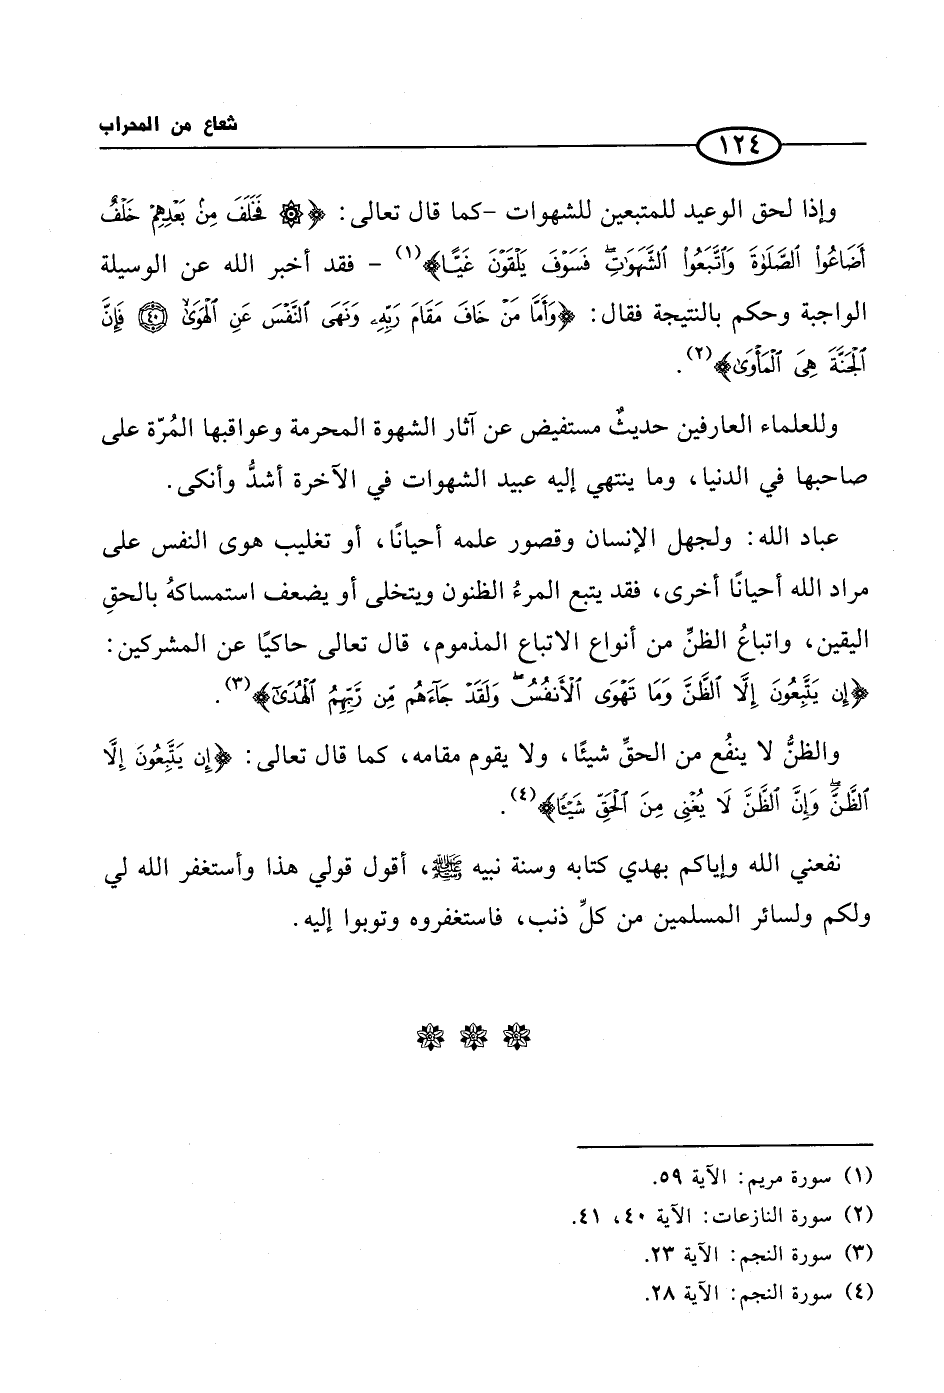 شعاع من المحراب
١٢٤
وإذا لحق الوعيد للمتبعين للشهوات -كما قال تعالى: ﴿۞ فَخَلَفَ مِنۢ بَعْدِهِمْ خَلْفٌ
أَضَاعُوا۟ ٱلصَّلَوٰةَ وَٱتَّبَعُوا۟ ٱلشَّهَوَٰتِ ۖ فَسَوْفَ يَلْقَوْنَ غَيًّا﴾(١) - فقد أخبر الله عن الوسيلة
الواجبة وحكم بالنتيجة فقال: ﴿وَأَمَّا مَنْ خَافَ مَقَامَ رَبِّهِۦ وَنَهَى ٱلنَّفْسَ عَنِ ٱلْهَوَىٰ ۝٤٠ فَإِنَّ
ٱلْجَنَّةَ هِىَ ٱلْمَأْوَىٰ﴾(٢).
وللعلماء العارفين حديثٌ مستفيض عن آثار الشهوة المحرمة وعواقبها المُرّة على
صاحبها في الدنيا، وما ينتهي إليه عبيد الشهوات في الآخرة أشدُّ وأنكى.
عباد الله: ولجهل الإنسان وقصور علمه أحيانًا، أو تغليب هوى النفس على
مراد الله أحيانًا أخرى، فقد يتبع المرءُ الظنون ويتخلى أو يضعف استمساكهُ بالحقِ
اليقين، واتباعُ الظنِّ من أنواع الاتباع المذموم، قال تعالى حاكيًا عن المشركين:
﴿إِن يَتَّبِعُونَ إِلَّا ٱلظَّنَّ وَمَا تَهْوَى ٱلْأَنفُسُ ۖ وَلَقَدْ جَآءَهُم مِّن رَّبِّهِمُ ٱلْهُدَىٰٓ﴾(٣).
والظنُّ لا ينفُع من الحقِّ شيئًا، ولا يقوم مقامه، كما قال تعالى: ﴿إِن يَتَّبِعُونَ إِلَّا
ٱلظَّنَّ ۖ وَإِنَّ ٱلظَّنَّ لَا يُغْنِى مِنَ ٱلْحَقِّ شَيْـًٔا﴾(٤).
نفعني الله وإياكم بهدي كتابه وسنة نبيه ﷺ، أقول قولي هذا وأستغفر الله لي
ولكم ولسائر المسلمين من كلِّ ذنب، فاستغفروه وتوبوا إليه.
(١) سورة مريم: الآية ٥٩.
(٢) سورة النازعات: الآية ٤٠، ٤١.
(٣) سورة النجم: الآية ٢٣.
(٤) سورة النجم: الآية ٢٨.